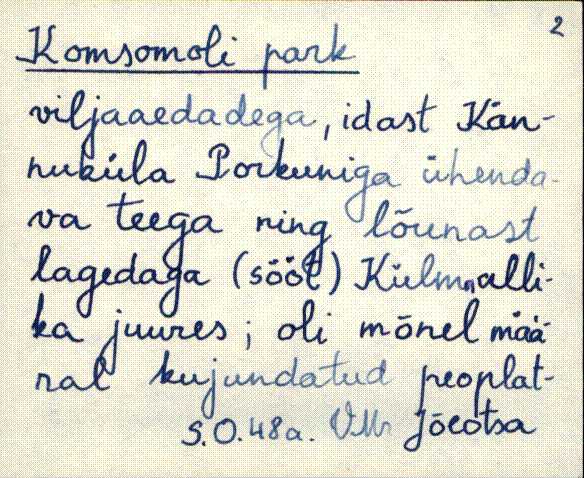 2
Komsomoli park
viljaaedadega, idast Kän-
nuküla Porkuniga ühenda-
va teega ning lõunast
lagedaga (sööt) Külmalli-
ka juures; oli mõnel mää-
ral kujundatud peoplat-
S.O. 48a. VMr Jõeotsa